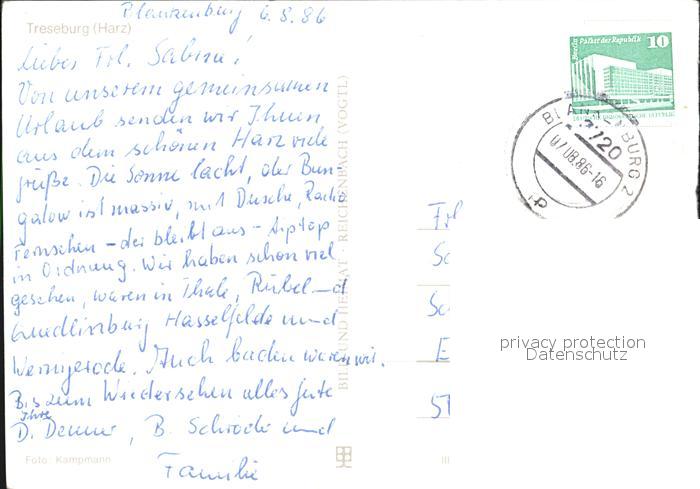 Blankenburg 6.8.86
Treseburg (Harz)
Liebes Frl. Sabine!
Von unserem gemeinsamen
Urlaub senden wir Ihnen
aus dem schönen Harz viele
Grüße. Die Sonne lacht, der Bun-
galow ist massiv, mit Dusche, Radio
Fernsehen - der bleibt aus - tiptop
in Ordnung. Wir haben schon viel
gesehen, waren in Thale, Rübeld
Quedlinburg Hasselfelde und
Wernigerode. Auch baden waren wir.
Bis zum Wiedersehen alles Gute
Ihre
D. Demme, B. Schröder und
Familie
Foto: Kampmann
BILD UND HEIMAT · REICHENBACH (VOGTL)
III
Berlin Palast der Republik
10
DEUTSCHE DEMOKRATISCHE REPUBLIK
BLANKENBURG 2
3720
07.08.86-16
Frl
Sa
Sc
E
51
privacy protection
Datenschutz